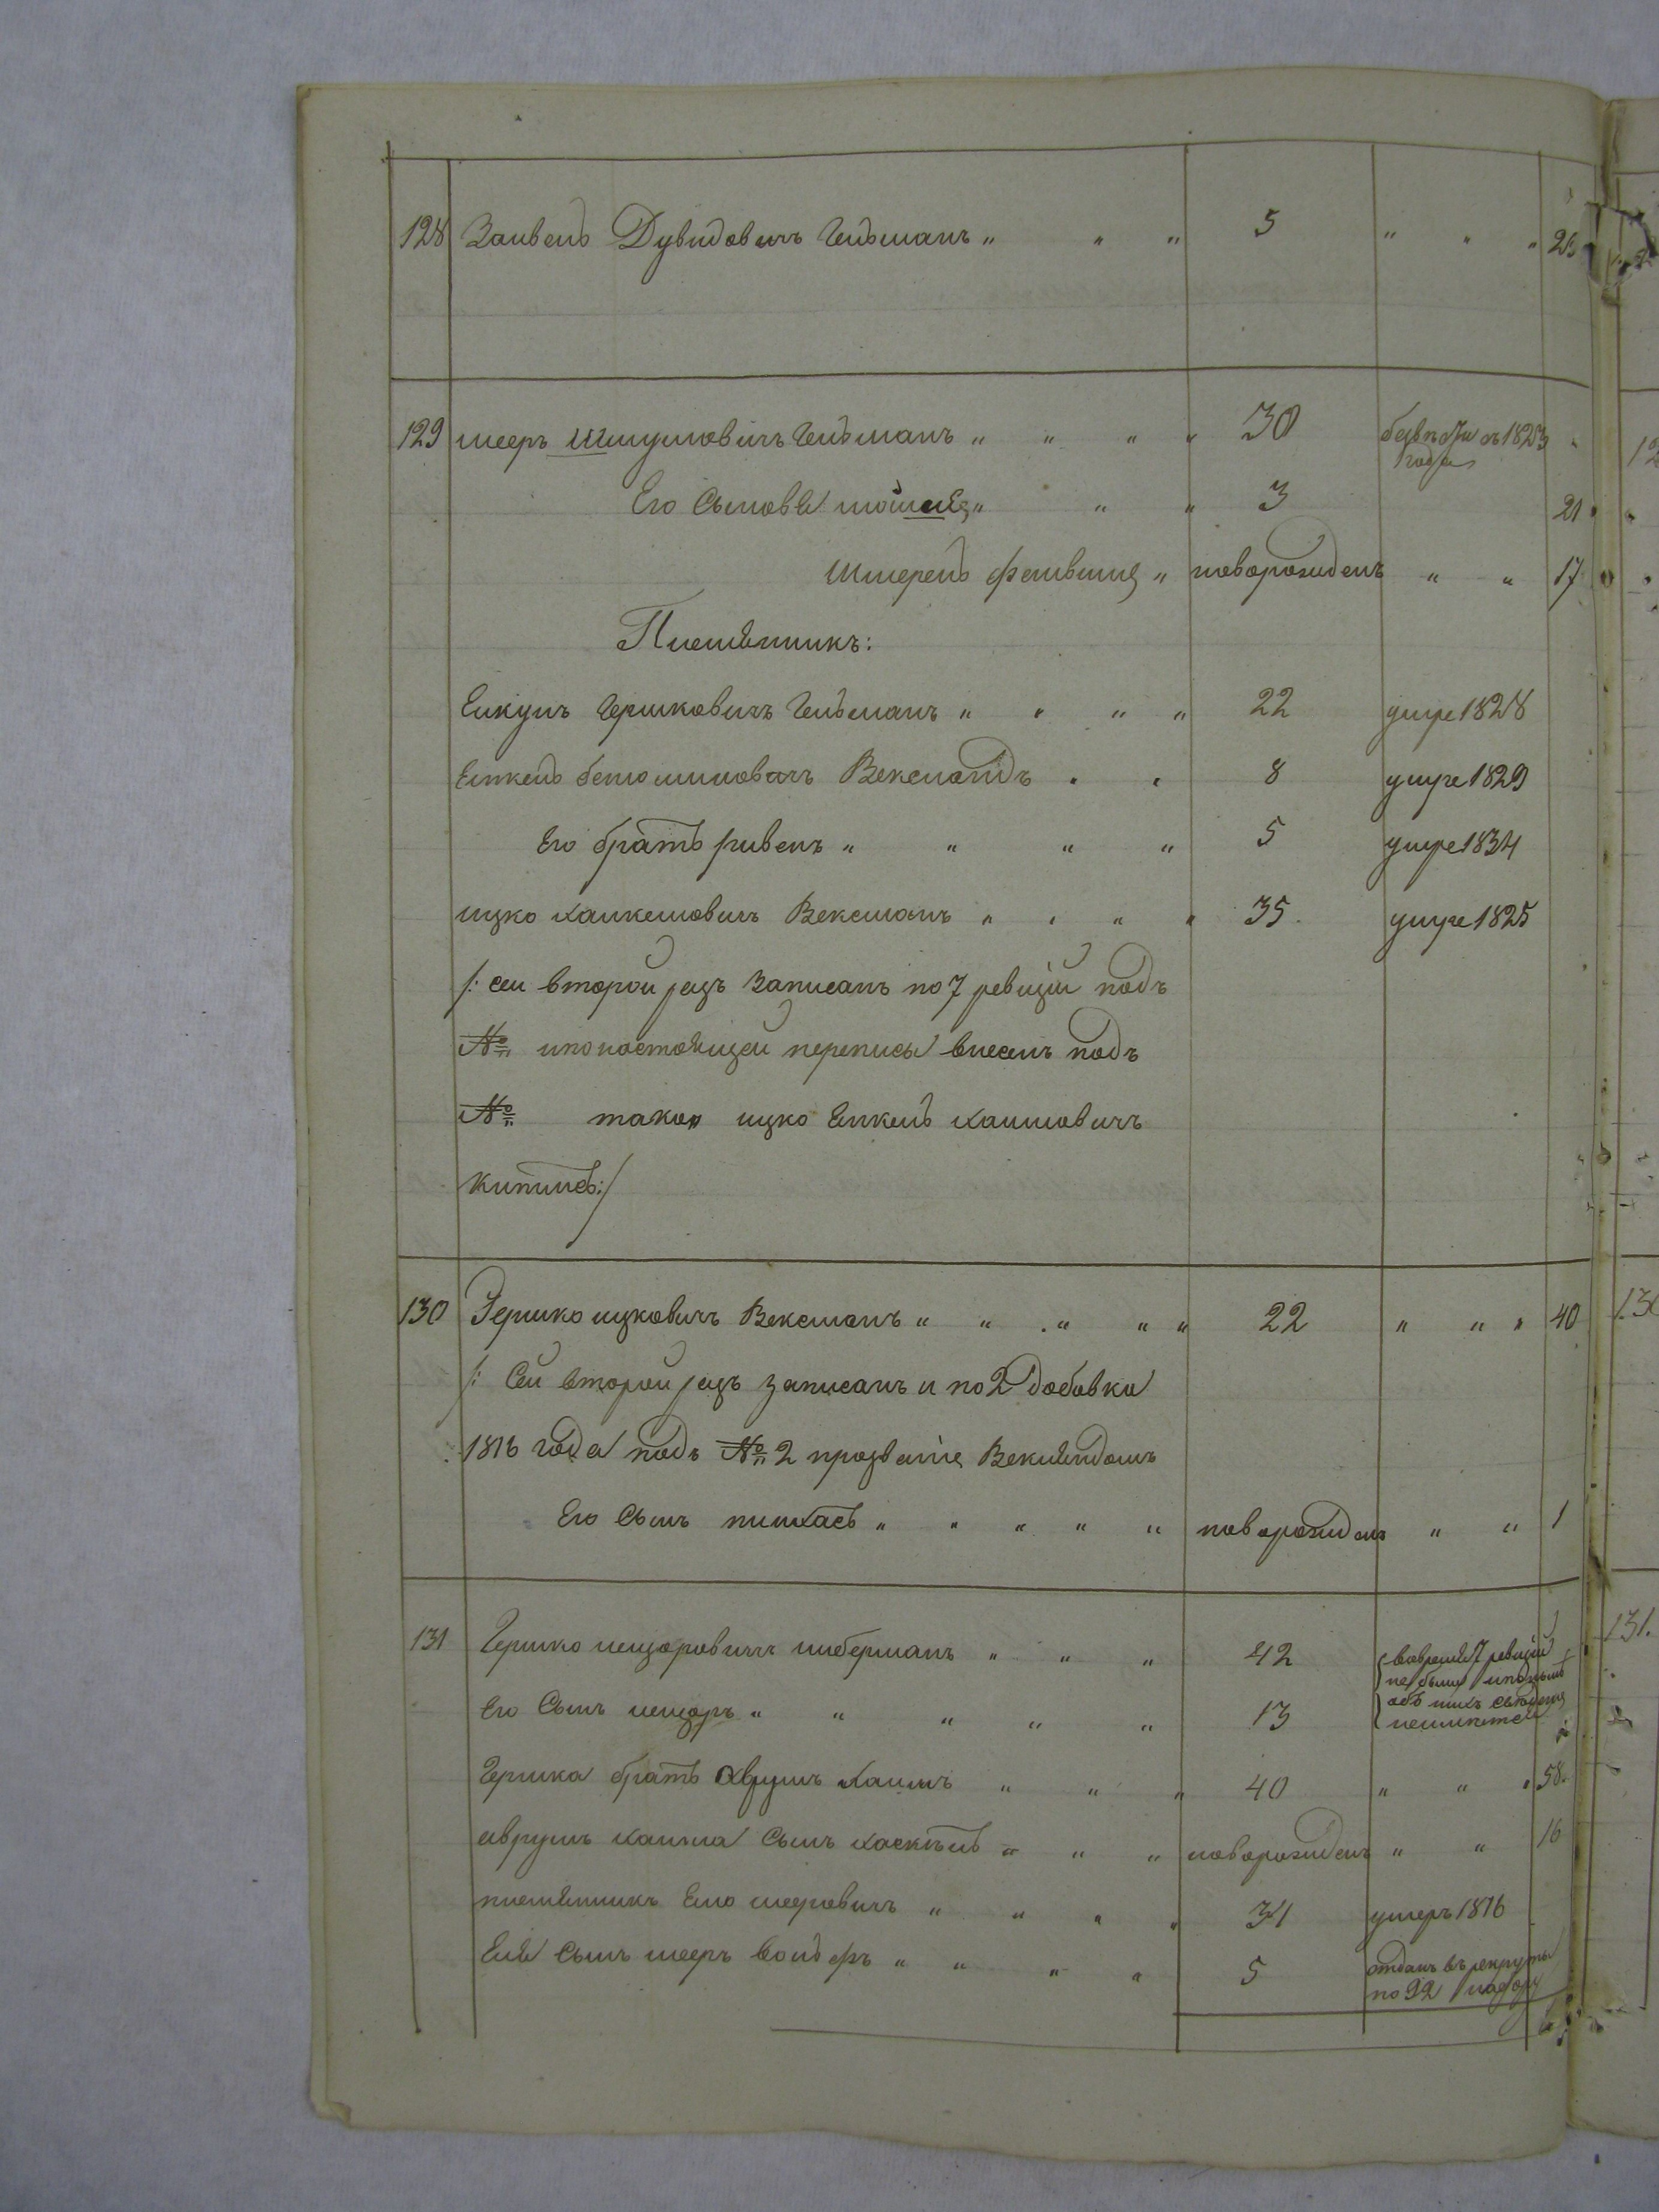 128 Зайвель Дувидовичъ Гельманъ " " " 5 " " " 23
129 мееръ Шмулиовичъ Гельманъ " " " " 30 1823
года
Его Сыновья мошка " " " 3 21
Шмерель файвиш " новорожденъ " " 17
Племянникъ:
Янкуль Гершковичъ Гельманъ " " " " 22 умре 1828
Янкель бениоминовичъ Вексманъ " " 8 умре 1829
Его братъ рувенъ " " " " 5 умре 1834
ицко Хаикелиовичъ Вексманъ " " " " 35 умре 1825
/: сей второй разъ Записанъ по 7 ревизіи подъ
№ и по настоящей переписи внесенъ подъ
№ такоя ицко Янкель Хаимовичъ
:/
130 Гершко ицковичъ Вексманъ " " " " " 22 " " " 40
/: Сей второй разъ записанъ и по 2 добавки
1816 года подъ № 2 прозваніе
Его Сынъ пинхасъ " " " " " новорожденъ " " 1
131 Гершко лейзоровичъ либерманъ " " " 42 во время 7 ревизіи
не были и
Его Сынъ лейзоръ " " " " " 13 объ нихъ сведенія
неимеется
Гершка братъ аврумъ Хаимъ " " " 40 " " " 58
аврумъ хаима Сынъ хаскель " " " новорожденъ " " 16
племянникъ Елио мееровичъ " " " " 31 умеръ 1816
Елия Сынъ мееръ вольфъ " " " " 5 отданъ въ рекруты
по 92 набору